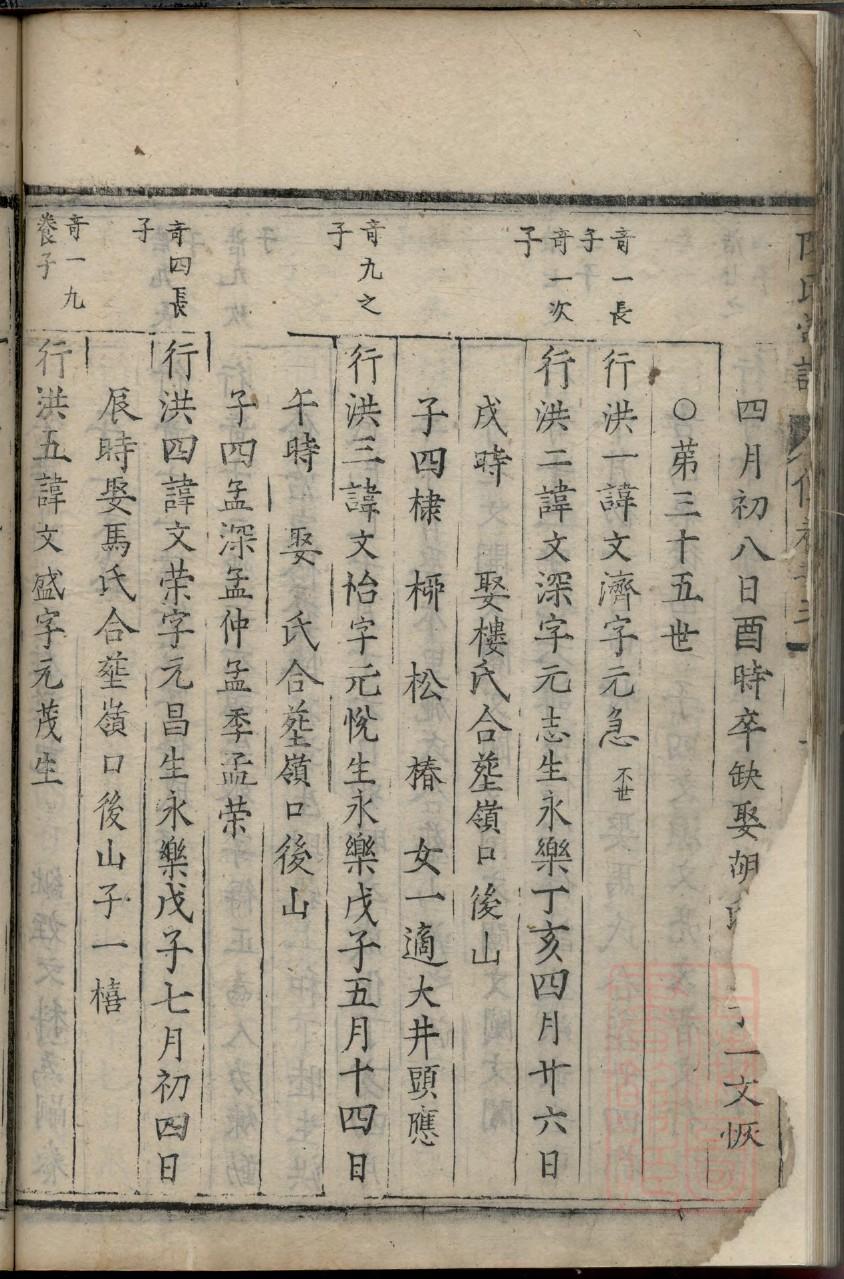 四月初八日酉時卒缺娶胡 一文恢
○苐三十五世
竒一長
子
行洪一諱文濟字元急不世
竒一次
子
行洪二諱文深字元志生永樂丁亥四月廿六日
戌時 娶樓氏合𦵏嶺口後山
子四棣 栁 松 椿 女一適大井頭應
竒九之
子
行洪三諱文怡字元悅生永樂戊子五月十四日
午時 娶 氏合𦵏嶺口後山
子四孟深孟仲孟季孟荣
竒四長
子
行洪四諱文荣字元昌生永樂戊子七月初四日
辰時娶馬氏合𦵏嶺口後山子一橲
竒一九
養子
行洪五諱文盛字元茂生